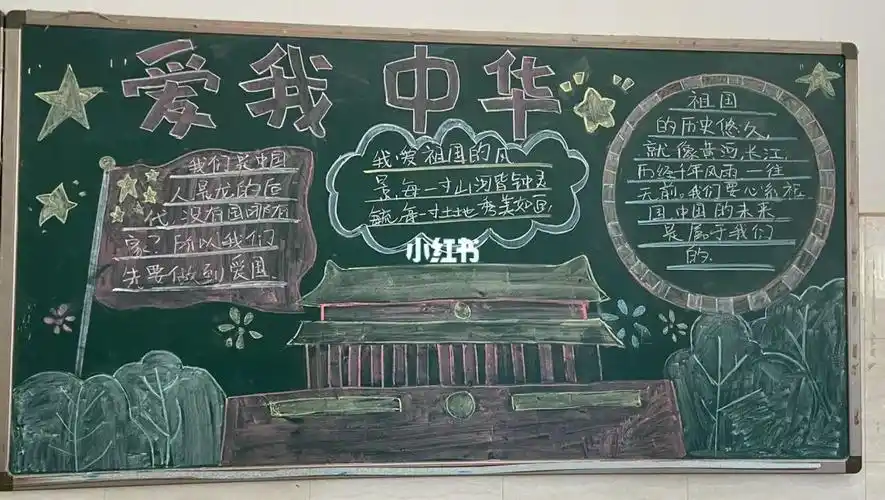 爱我中华
我们是中国
人是龙的后
代,没有国哪有
家?所以我们
先要做到爱国.
我爱祖国的风
景,每一寸山河皆钟灵
毓,每一寸土地秀美如画,
小红书
祖国
的历史悠久,
就像黄河,长江,
历经千年风雨一往
无前,我们要心系祖
国,中国的未来
是属于我们
的.